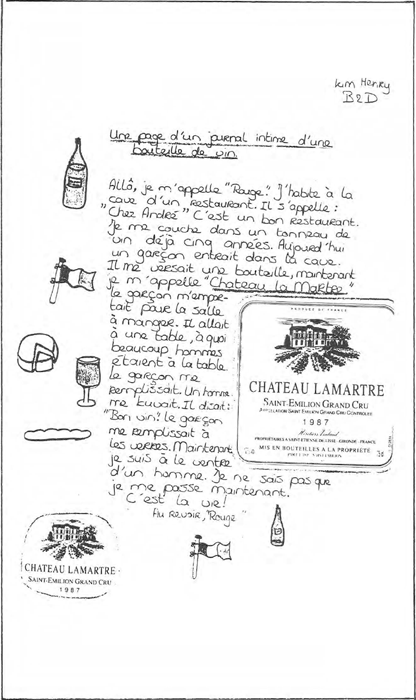 Kim Henry
B2D
Une page d'un journal intime d'une
bouteille de vin
Allô, je m'appelle "Rouge". J'habite à la
cave d'un restaurant. Il s'appelle:
"Chez André" C'est un bon restaurant.
Je me couche dans un tonneau de
vin déjà cinq années. Aujourd'hui
un garçon entrait dans la cave.
Il me versait une bouteille, maintenant
je m'appelle "Chateau La Martre"
le garçon m'empor-
tait pour la salle
à manger. Il allait
à une table, à quoi
beaucoup hommes
étaient à la table
le garçon me
remplissait. Un homme
me buvait. Il disait:
"Bon vin! le garçon
me remplissait à
les verres. Maintenant
je suis à le ventre
d'un homme. Je ne sais pas que
je me passe maintenant.
C'est la vie!
Au revoir, "Rouge"
PRODUCE OF FRANCE
CHATEAU LAMARTRE
SAINT-EMILION GRAND CRU
APPELLATION SAINT-EMILION GRAND CRU CONTROLEE
1987
MIS EN BOUTEILLES A LA PROPRIETE
CHATEAU LAMARTRE
SAINT-EMILION GRAND CRU
1987